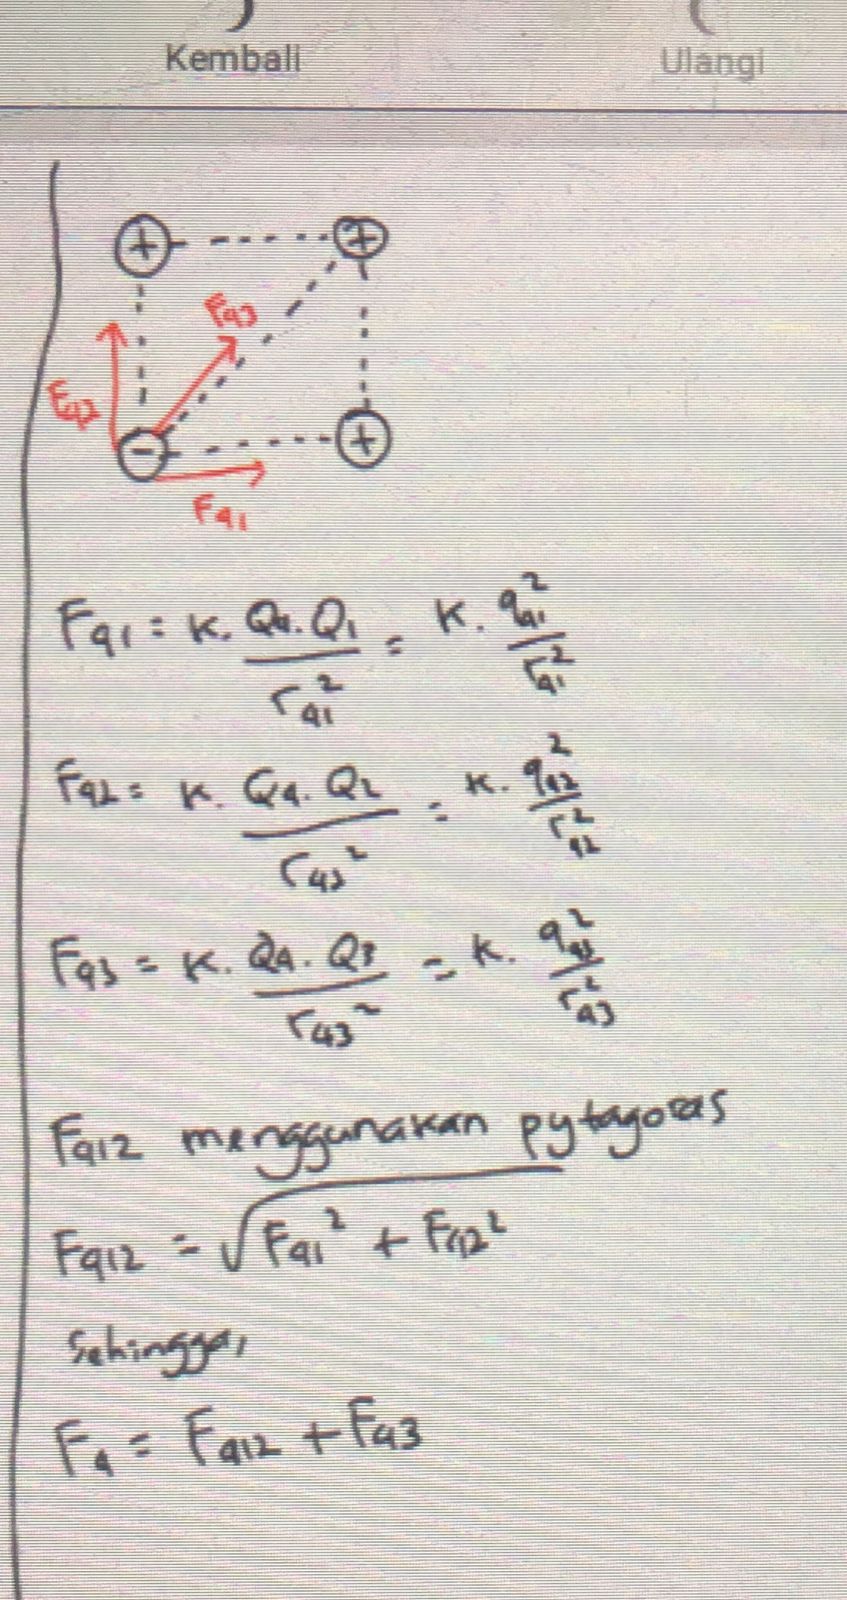 Kembali Ulangi
+ +
F43
F42
- +
F41
F41 = K. Q4. Q1 / r41² = K. q41² / r41²
F42 = K. Q4. Q2 / r43² = K. q42² / r42²
F43 = K. Q4. Q3 / r43² = K. q43² / r43²
F412 menggunakan pytagoras
F412 = √F41² + F42²
Sehingga,
F4 = F412 + F43